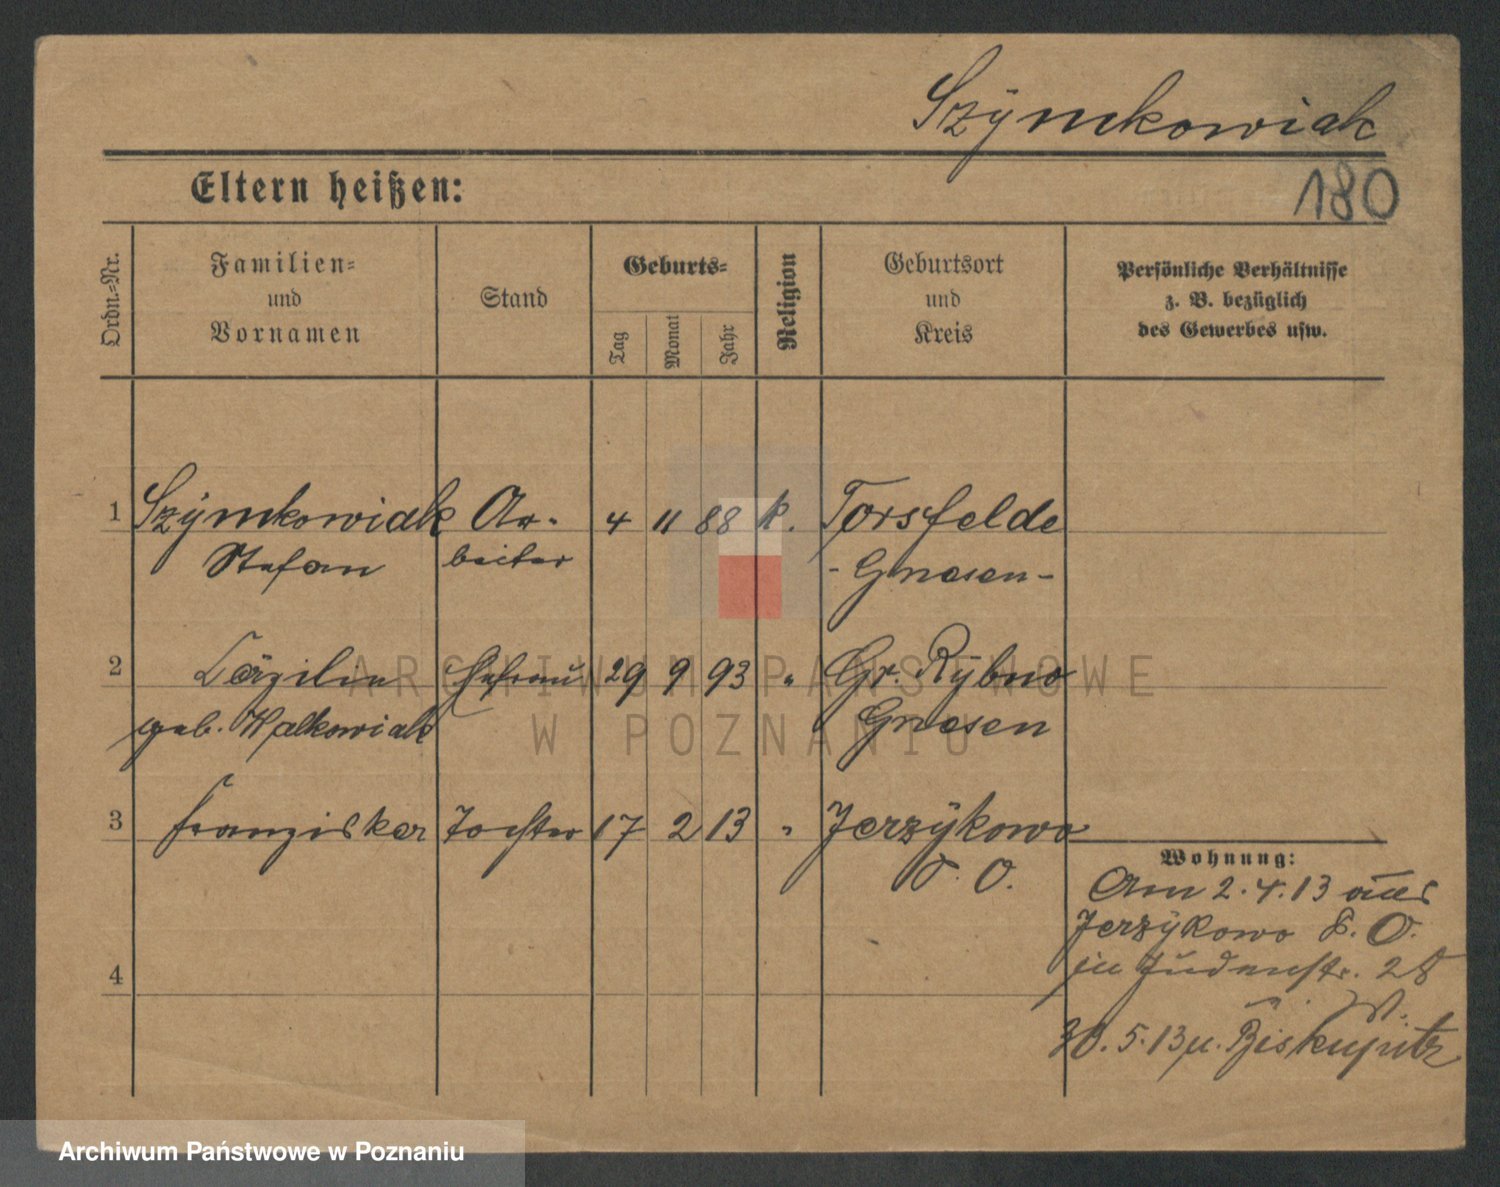 Szymkowiak
180
Eltern heißen:
Ordn.-Nr.
Familien-
und
Vornamen
Stand
Geburts-
Tag
Monat
Jahr
Religion
Geburtsort
und
Kreis
Persönliche Verhältnisse
z. B. bezüglich
des Gewerbes usw.
1 Szÿmkowiak Ar- 4 11 88 k. Torsfelde
Stefan beiter - Gnesen -
2 Cäzilie Ehefrau 29 9 93 " Gr. Rÿbno
geb. Walkowiak Gnesen
3 Franziska Tochter 17 2 13 " Jerzÿkowo
P. O.
Wohnung:
Am 2.4.13 aus
Jerzÿkowo P. O.
in Judenstr. 28
4
30.5.13 n. Biskupitz
ARCHIWUM PAŃSTWOWE
W POZNANIU
Archiwum Państwowe w Poznaniu